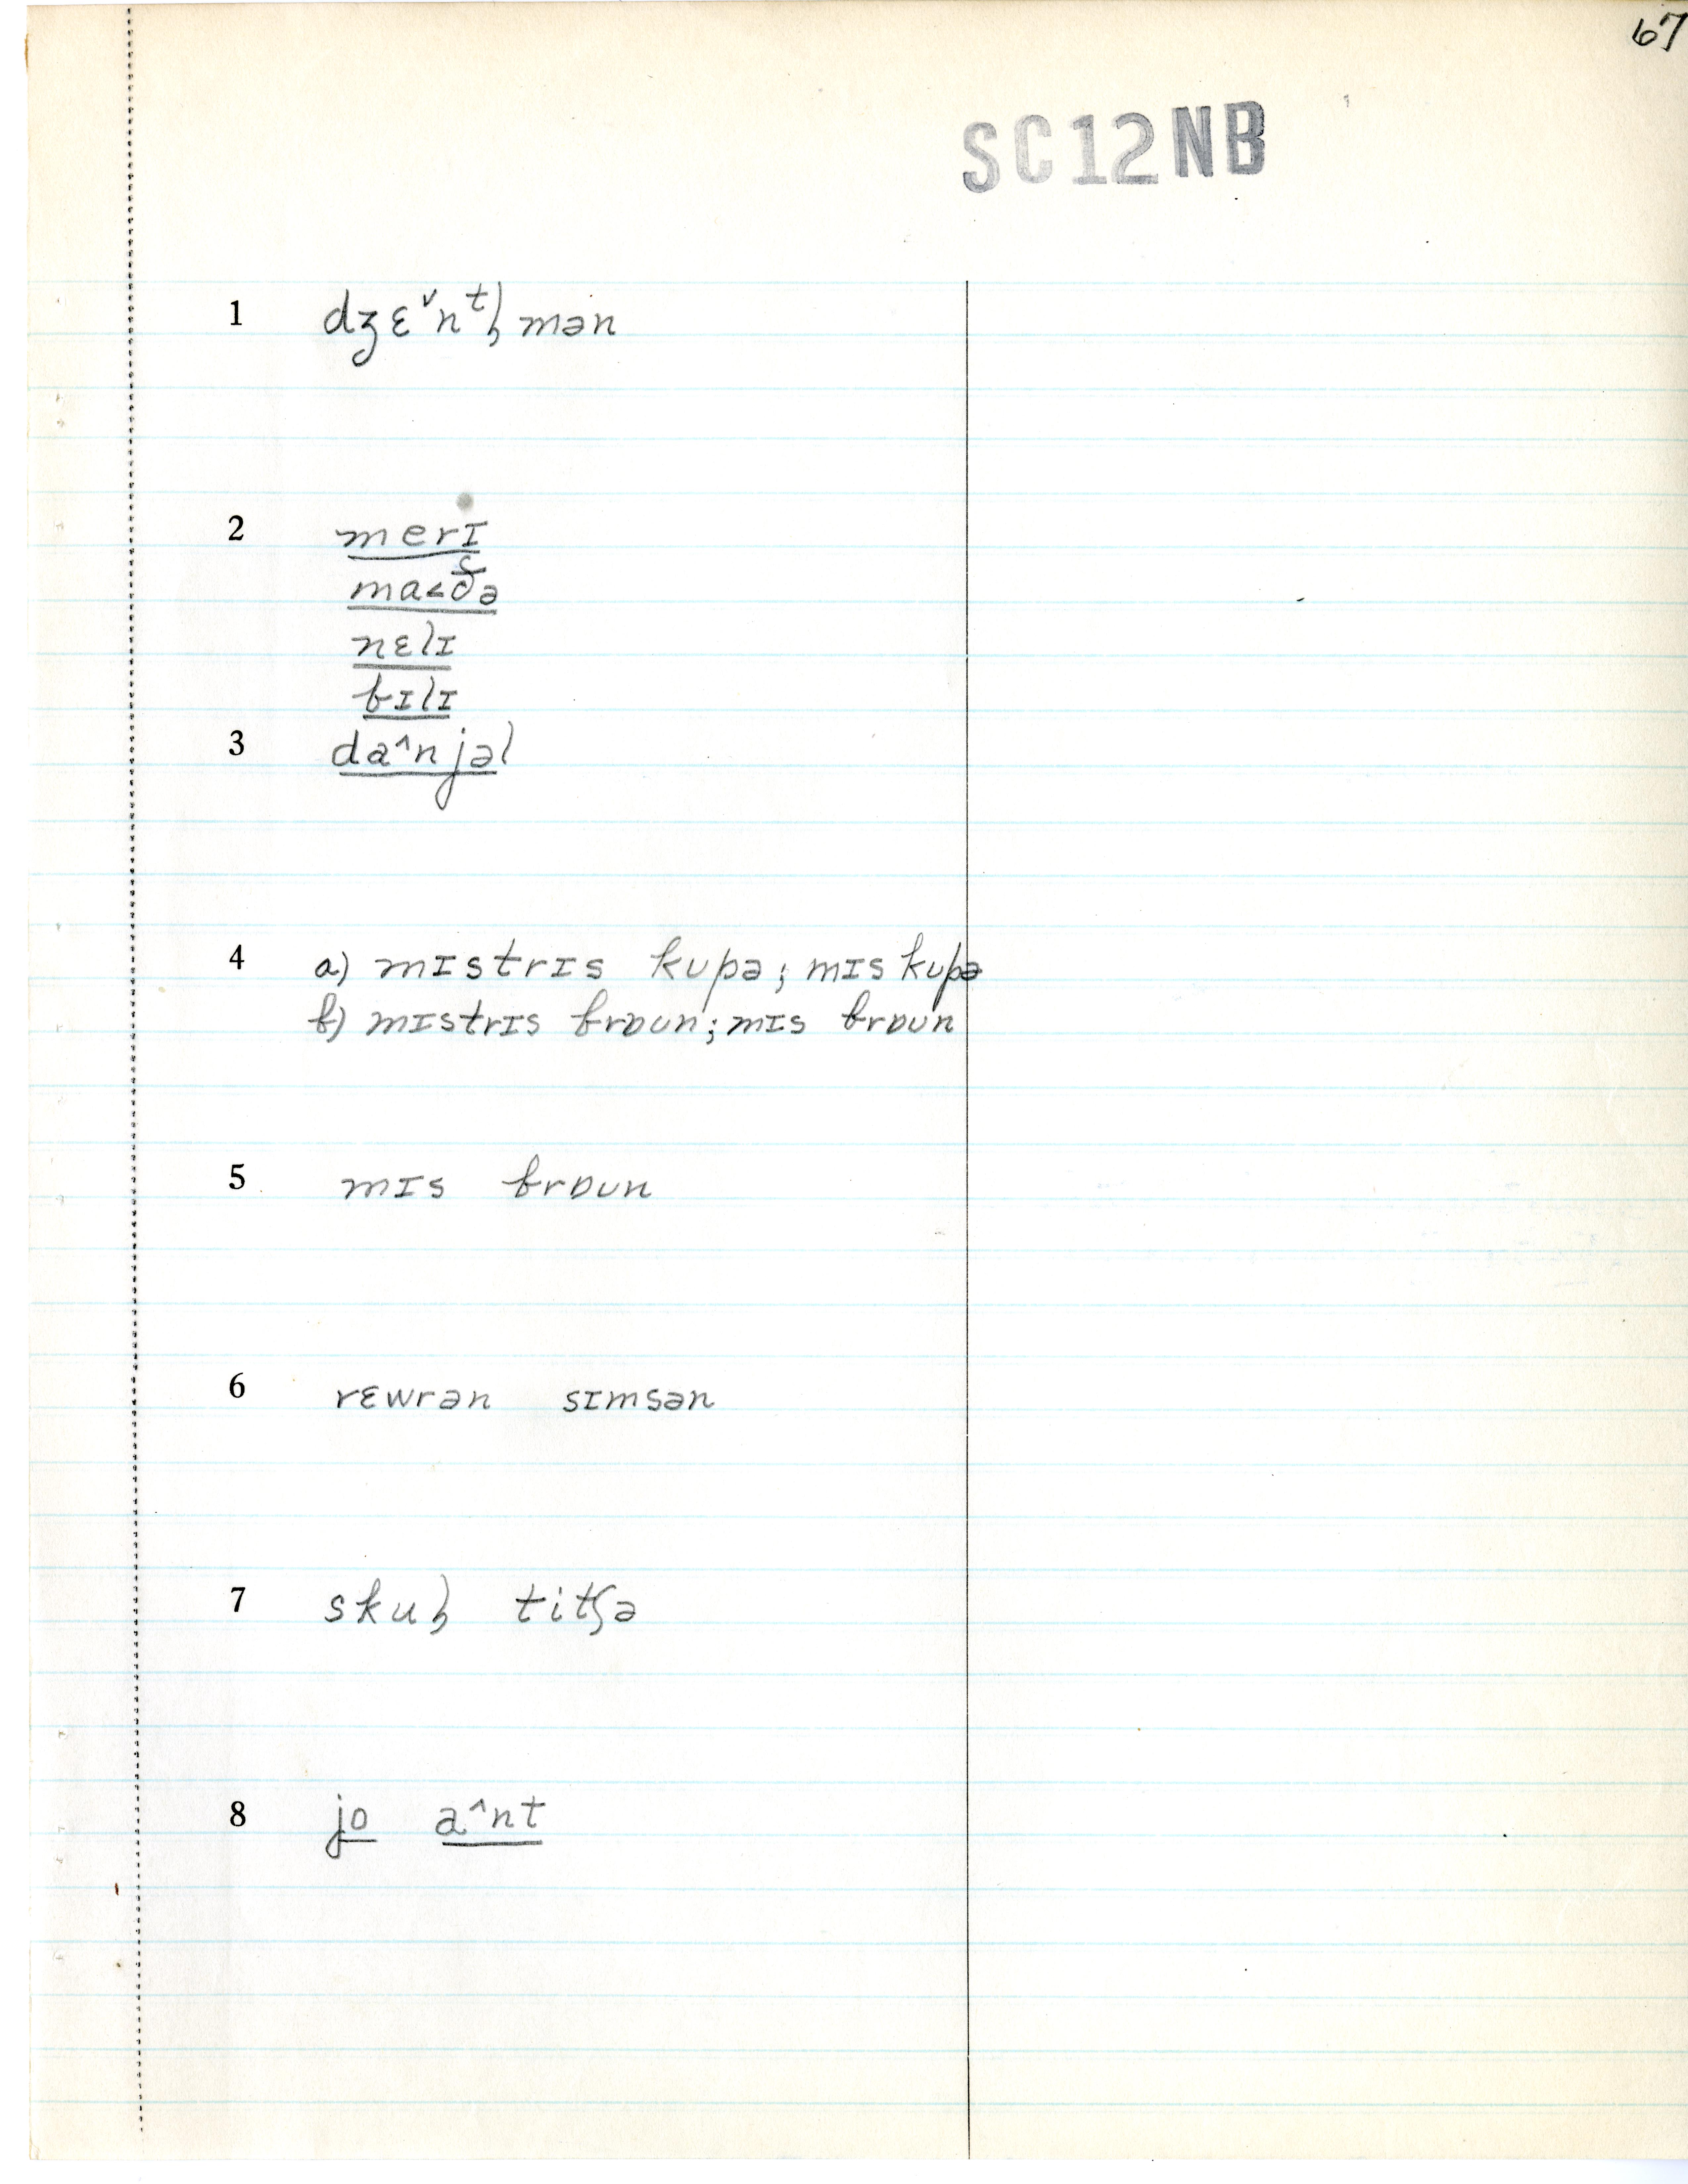 67
SC12NB
1 dʒɛ˅nᵗl̩mən
2 merɪ
ma˂ð̬ə
nɛlɪ
bɪlɪ
3 da^njəl
4 a) mɪstrɪs kupə; mɪs kupə
b) mɪstrɪs brɒun; mɪs brɒun
5 mɪs brɒun
6 rɛwrən sɪmsən
7 skul̩ titʃə
8 jo a^nt